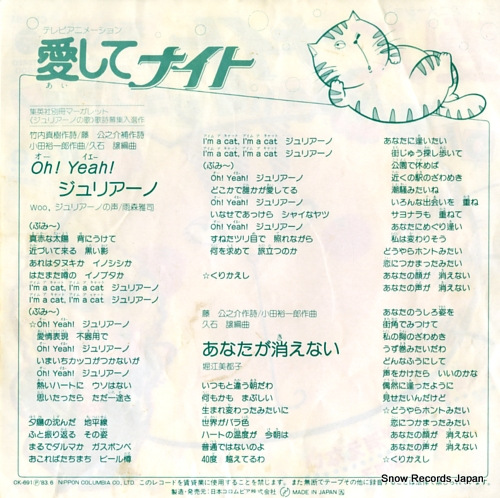 テレビアニメーション
愛してナイト
あい
集英社別冊マーガレット
《ジュリアーノの歌》歌詩募集入選作
竹内真樹作詩/藤 公之介補作詩
小田裕一郎作曲/久石 譲編曲
オー イエー
Oh! Yeah!
ジュリアーノ
Woo, ジュリアーノの声/雨森雅司
(ぶみ〜)
真赤な太陽 背にうけて
近づいて来る 黒い影
あれはタヌキか イノシシか
はたまた噂の イノブタか
I'm a cat, I'm a cat ジュリアーノ
I'm a cat, I'm a cat ジュリアーノ
(ぶみ〜)
☆Oh! Yeah! ジュリアーノ
愛情表現 不器用で
Oh! Yeah! ジュリアーノ
いまいちカッコがつかないが
Oh! Yeah! ジュリアーノ
熱いハートに ウソはない
思いったたら ただ一途さ
夕陽の沈んだ 地平線
ふと振り返る その姿
まるでダルマか ガスボンベ
あこれはたぢまち ビール樽
I'm a cat, I'm a cat ジュリアーノ
I'm a cat, I'm a cat ジュリアーノ
(ぶみ〜)
Oh! Yeah! ジュリアーノ
どこかで誰かが愛してる
Oh! Yeah! ジュリアーノ
いなせであっけら シャイなヤツ
Oh! Yeah! ジュリアーノ
すねたツリ目で 照れながら
何を求めて 旅立つのか
☆くりかえし
藤 公之介作詩/小田裕一郎作曲
久石 譲編曲
あなたが消えない
堀江美都子
いつもと違う朝だわ
何もかも まぶしい
生まれ変わったみたいに
世界がバラ色
ハートの温度が 今朝は
普通ではないのよ
40度 越えてるわ
あなたに逢いたい
街じゅう探し歩いて
公園で休めば
近くの駅のざわめき
潮騒みたいね
いろんな出会いを 重ね
サヨナラも 重ねて
あなたにめぐり逢い
私は変わりそう
どうやらホントみたい
恋につかまったみたい
あなたの顔が 消えない
あなたの声が 消えない
あなたのうしろ姿を
街角でみつけて
私の胸のざわめき
うず巻いたみたいだわ
どんなふうにして
声をかけたら いいのかな
偶然に逢ったように
見せたいんだけど
☆どうやらホントみたい
恋につかまったみたい
あなたの顔が 消えない
あなたの声が 消えない
☆くりかえし
CK-691 Ⓟ'83.6 NIPPON COLUMBIA CO., LTD. このレコードを賃貸業に使用することを禁じます。また無断でテープその他に録音することは法律で禁じられています。
製造・発売元:日本コロムビア株式会社 MADE IN JAPAN
Snow Records Japan